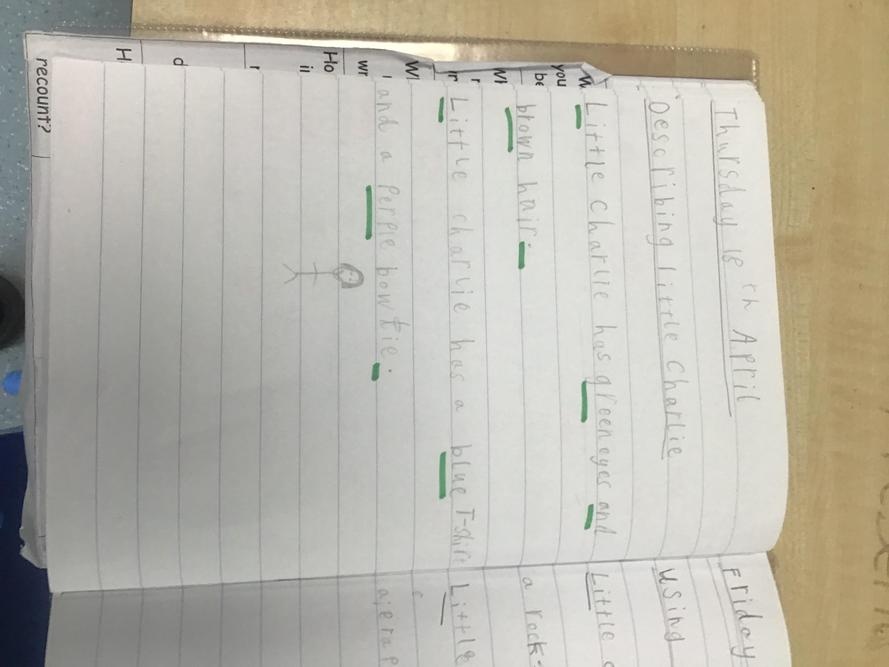 Thursday 18th April
Describing Little Charlie
Little Charlie has green eyes and
brown hair.
Little charlie has a blue T-shirt
and a perple bowtie.
Friday
using
Little
a rock-
Little
you
be
Ho
wr
recount?